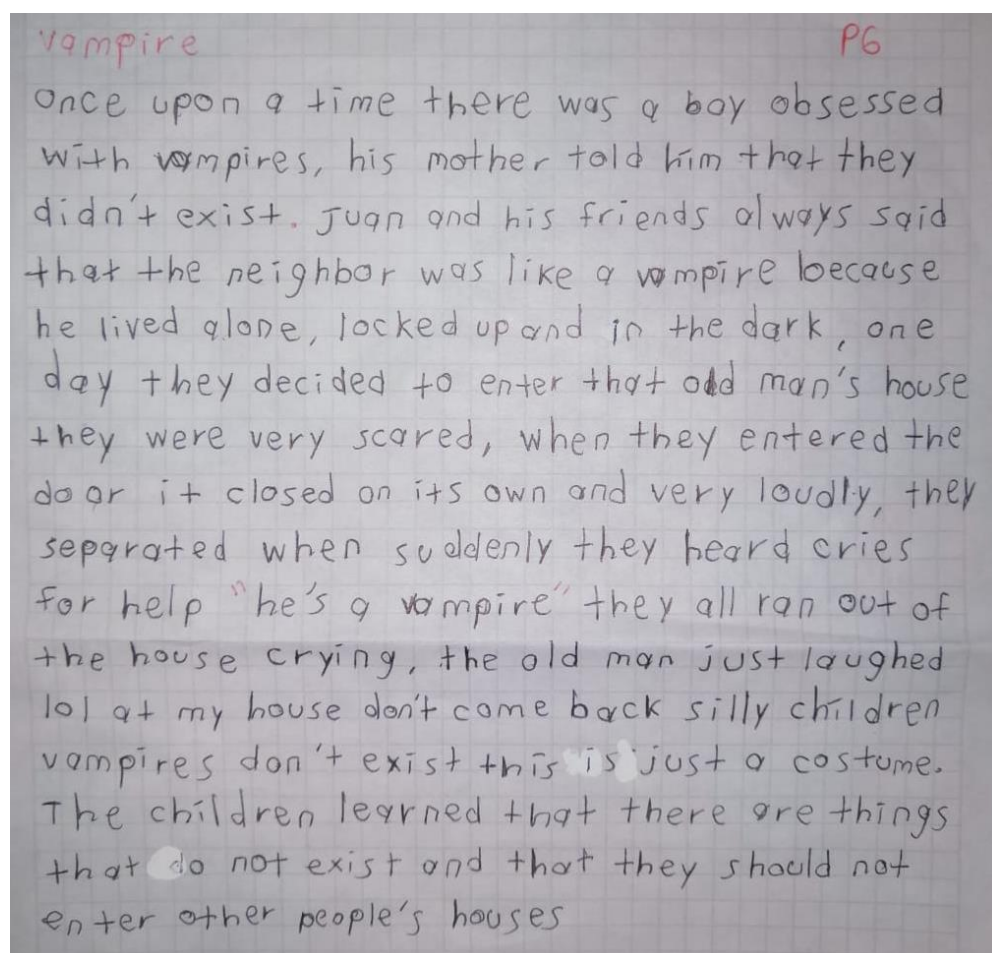 vampire P6
Once upon a time there was a boy obsessed
with vampires, his mother told him that they
didn't exist. Juan and his friends always said
that the neighbor was like a vampire because
he lived alone, locked up and in the dark, one
day they decided to enter that odd man's house
they were very scared, when they entered the
door it closed on its own and very loudly, they
separated when suddenly they heard cries
for help "he's a vampire" they all ran out of
the house crying, the old man just laughed
lol at my house don't come back silly children
vampires don't exist this is just a costume.
The children learned that there are things
that do not exist and that they should not
enter other people's houses